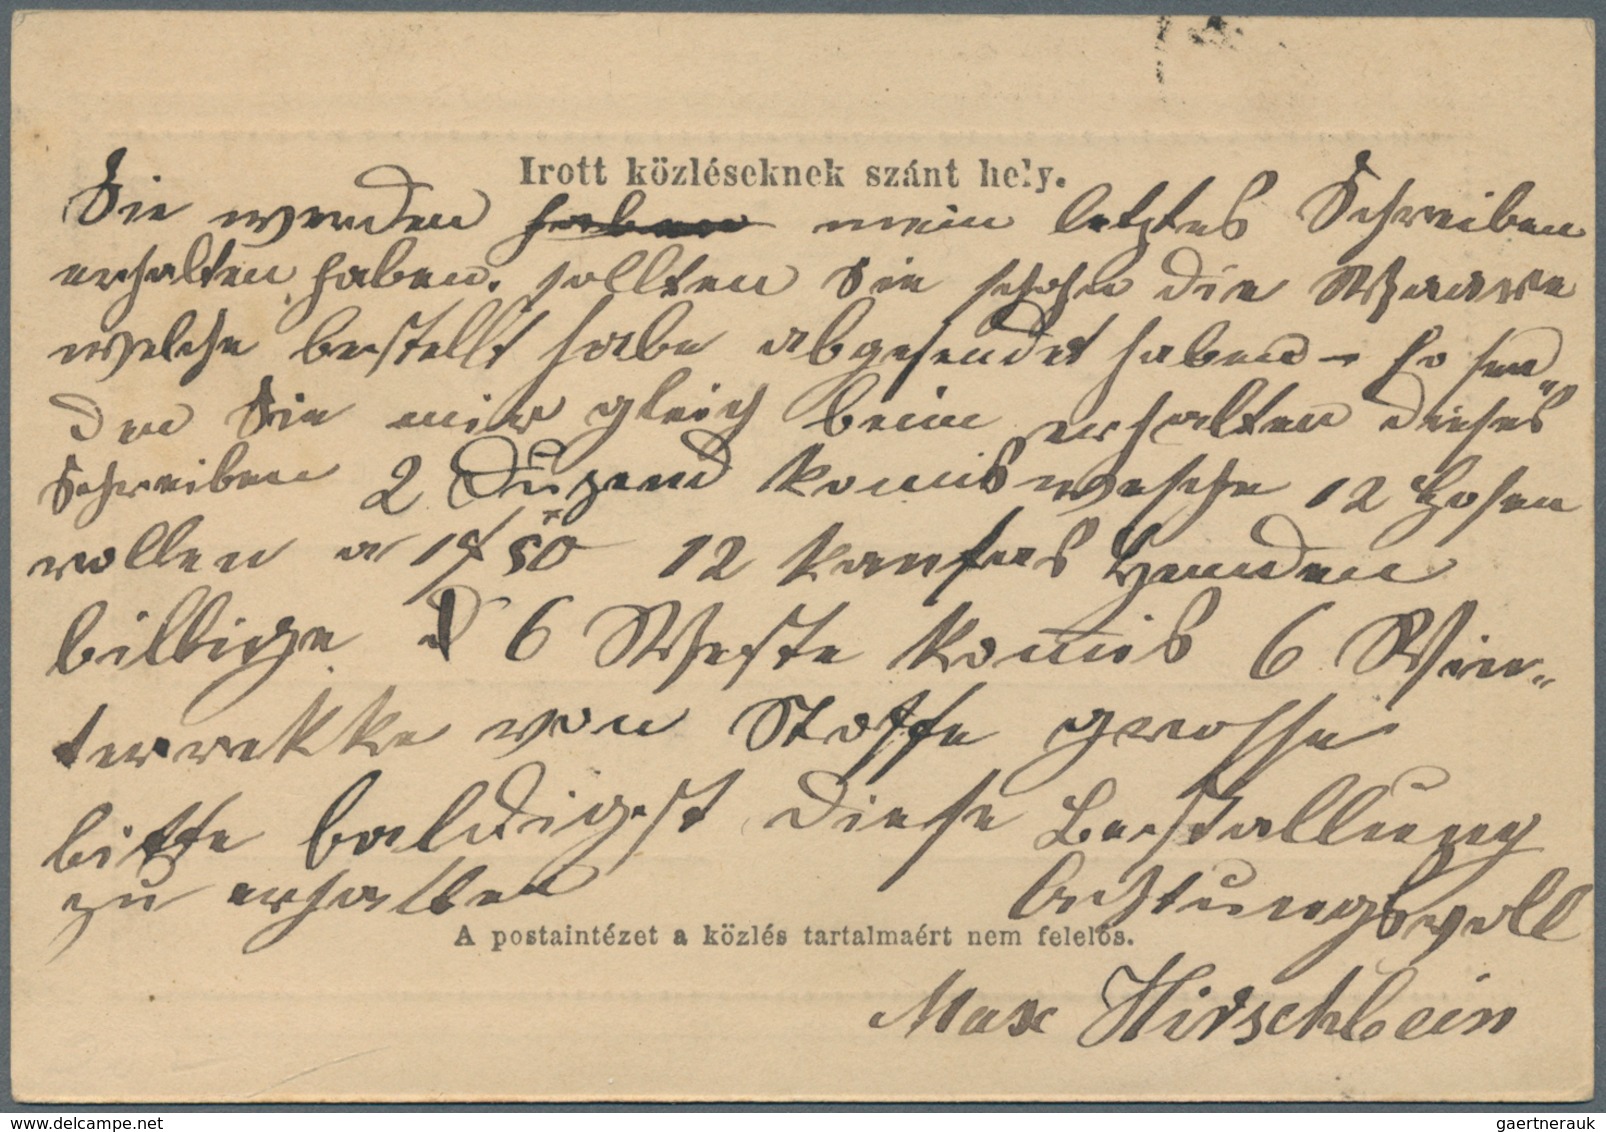 Irott közléseknek szánt hely.
Sie werden haben mein letztes Schreiben
erhalten haben. sollten Sie schohn die Waare
welche bestellt habe abgesendet haben – so sen„
den Sie mir gleich beim erhalten dieses
Schreiben 2 Duzend Komis wesche 12 Hosen
wollen a 1f 50 12 Hemden
billige 6 Weste Komis 6 Win„
terrekke von Stoffe grosse
bitte baldigst diese Bestallung
zu erhalten Achtungsvoll
A postaintézet a közlés tartalmaért nem felelős.
Max Hirschbein
gaertnerauk